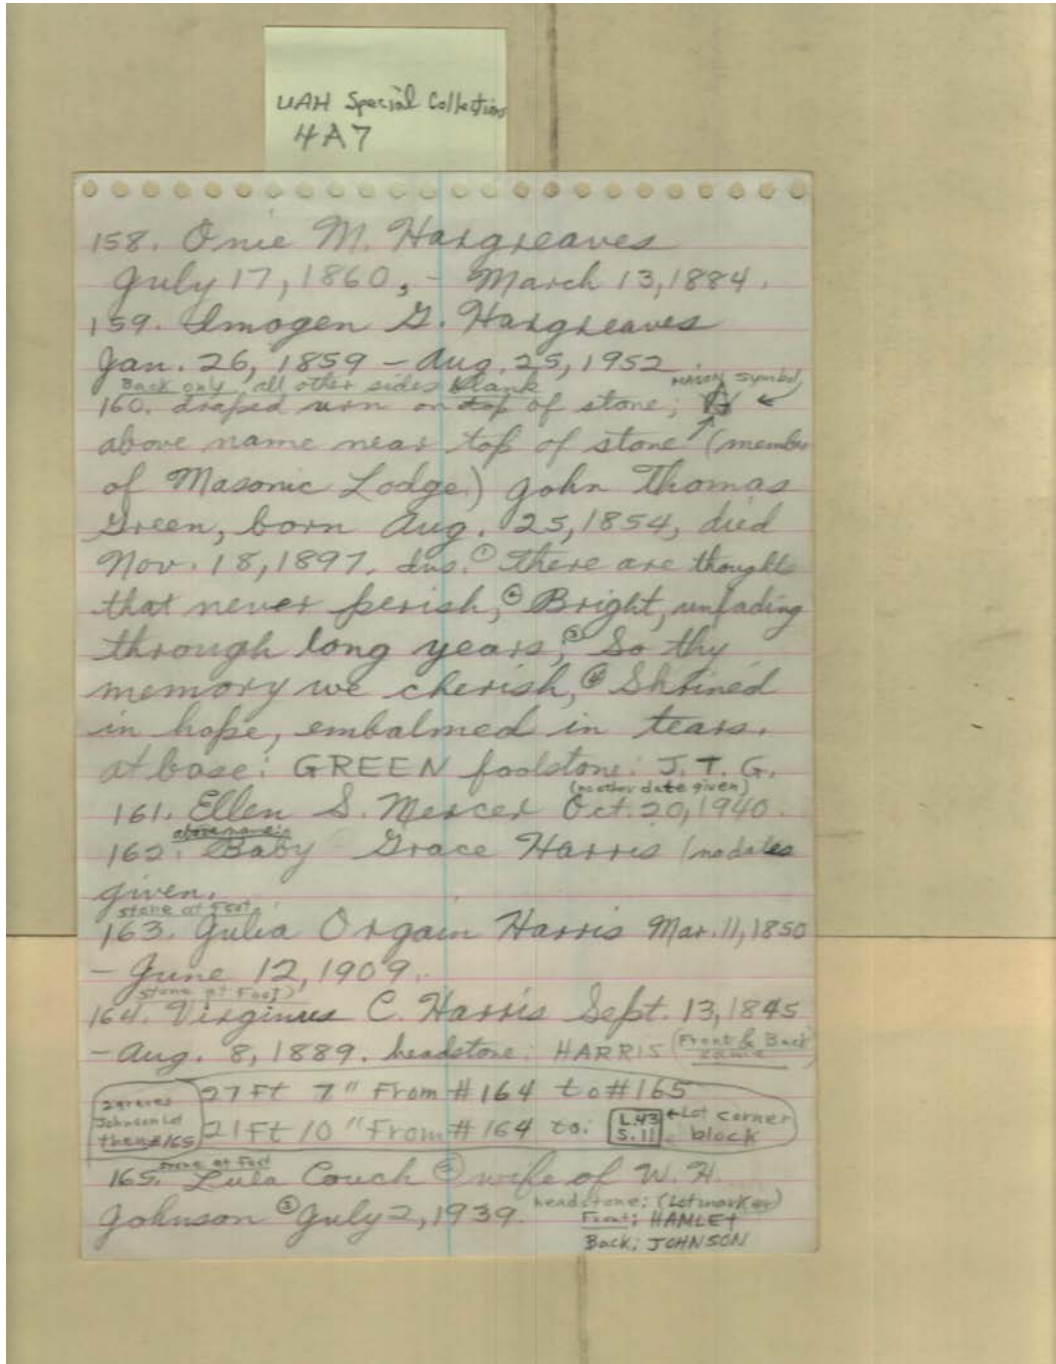 UAH Special Collections
4A7
158. Onie M. Hargreaves
July 17, 1860, - March 13, 1884.
159. Imogen G. Hargreaves
Jan. 26, 1859 - Aug. 25, 1952.
Back only, all other sides blank
Mason symbol
160. draped urn on top of stone;
above name near top of stone (member
of Masonic Lodge) John Thomas
Green, born Aug. 25, 1854, died
Nov. 18, 1897. ins. ① There are thoughts
that never perish, ② Bright, unfading
through long years, ③ So thy
memory we cherish, ④ Shrined
in hope, embalmed in tears.
at base: GREEN footstone: J. T. G.
(no other date given)
161. Ellen S. Mercer Oct. 20, 1940.
above name
162. Baby Grace Harris (no dates
given.
stone at Foot
163. Julia Orgain Harris Mar. 11, 1850
- June 12, 1909.
stone at Foot)
164. Virginius C. Harris Sept. 13, 1845
- Aug. 8, 1889. headstone: HARRIS (Front & Back same
27 Ft 7" From #164 to #165
2 graves
Johnson Lot
then #165
21 Ft 10" From #164 to: L.43 S.11 ← Lot corner block
stone at Foot
165. Lula Couch ② wife of W. H.
Johnson ③ July 2, 1939. headstone: (Lot marker)
Front: HAMLET
Back: JOHNSON